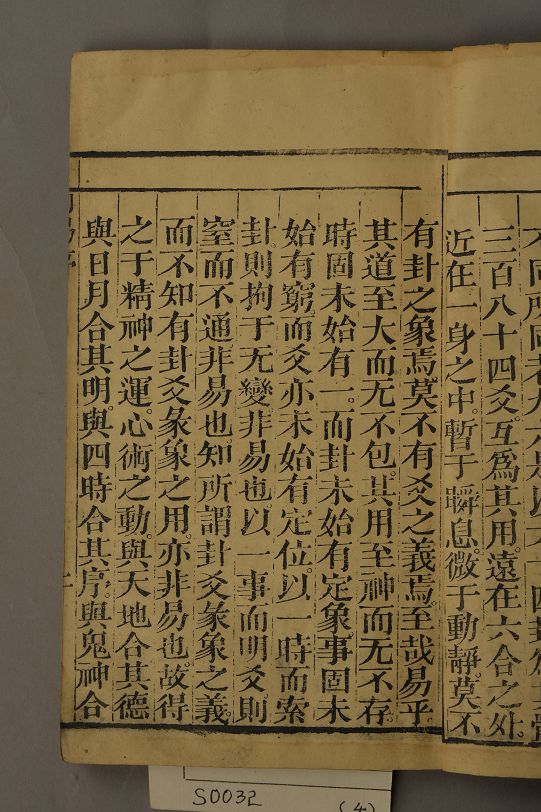 三百八十四爻。互爲其用。遠在六合之外。
近在一身之中。暫于瞬息。微于動靜。莫不
有卦之象焉。莫不有爻之義焉。至哉易乎。
其道至大而无不包。其用至神而无不存。
時固未始有一。而卦未始有定象。事固未
始有窮。而爻亦未始有定位。以一時而索
卦。則拘于无變。非易也。以一事而明爻。則
窒而不通。非易也。知所謂卦爻彖象之義。
而不知有卦爻彖象之用。亦非易也。故得
之于精神之運。心術之動。與天地合其德
與日月合其明。與四時合其序。與鬼神合
S0032
(4)